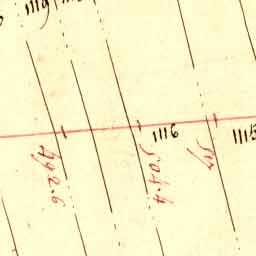 1119
1116
1115
492.6
504.4
517